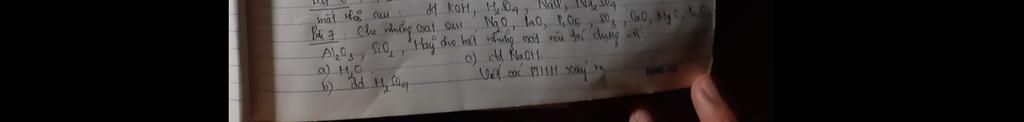 mất nhãn sau: dd KOH, H₂SO₄, NaCl, Na₂SO₄
Bài 7: Cho những oxit sau: Na₂O, BaO, P₂O₅, SO₃, CaO, MgO,
Al₂O₃, SiO₂, Hãy cho biết những oxit nào tác dụng với
a) H₂O c) dd NaOH
b) dd H₂SO₄ Viết các PTHH xảy ra.